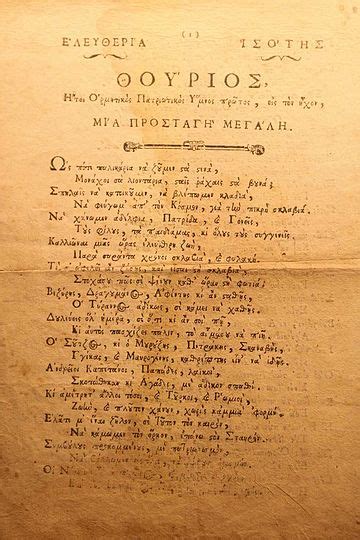 (1)
ΕΛΕΥΘΕΡΙΑ ΙΣΟΤΗΣ
ΘΟΥΡΙΟΣ,
Ἤτοι Ὁρμητικὸς Πατριωτικὸς Ὕμνος πρῶτος, εἰς τὸν ἦχον,
ΜΙΑ ΠΡΟΣΤΑΓΗ ΜΕΓΑΛΗ.
Ὡς πότε παλικάρια νὰ ζοῦμεν στὰ στενά,
Μονάχοι σὰ λιοντάρια, σταῖς ράχαις στὰ βουνά;
Σπηλιαῖς νὰ κατοικοῦμεν, νὰ βλέπωμεν κλαδιά,
Νὰ φεύγωμ' ἀπ' τὸν Κόσμον, γιὰ τὴν πικρὴ σκλαβιά.
Νὰ χάνωμεν ἀδέλφια, Πατρίδα, & Γονεῖς,
Τοὺς φίλους, τὰ παιδιά μας, κι ὅλους τοὺς συγγενεῖς.
Καλλιῶναι μιᾶς ὥρας ἐλεύθερη ζωή,
Παρὰ σαράντα χρόνοι σκλαβιά, & φυλακή.
Τί σ' ὠφελεῖ ἂν ζήσης, καὶ εἶσαι στὴ σκλαβιά,
Στοχάσου πῶς σὲ ψένουν καθ' ὥραν στὴ φωτιά;
Βεζύρης, Δραγουμάνος, Ἀφέντης κι ἂν σταθῆς,
Ὁ Τύραννος ἀδίκως, σὲ κάμει νὰ χαθῆς.
Δουλεύεις ὅλ' ἡμέρα, σὲ ὅ,τι κι ἂν σοὶ πῆ,
Κι αὐτὸς πασχίζει πάλιν, τὸ αἷμα σου νὰ πιῆ.
Ὁ Σούτζος, κι ὁ Μουρούζης, Πετράκης, Σκαναβῆς,
Γγίκας, & Μαυρογένης, καθρέπτης εἶν' νὰ ἰδῆς.
Ἀνδρεῖοι Καπετάνοι, Παπάδες, λαϊκοί,
Σκοτώθηκαν κι Ἀγάδες, μὲ ἄδικον σπαθί.
Κι ἀμέτρητ' ἄλλοι τόσοι, & Τοῦρκοι, & Ῥωμιοί,
Ζωήν, & πλοῦτον χάνουν, χωρὶς κἀμμιὰ 'φορμή.
Ἐλᾶτε μ' ἕναν ζῆλον, σὲ τοῦτον τὸν καιρόν,
Νὰ κάμωμεν τὸν ὅρκον, ἐπάνω στὸν Σταυρόν.
Συμβούλους προκομμένους, μὲ πατριωτισμὸν